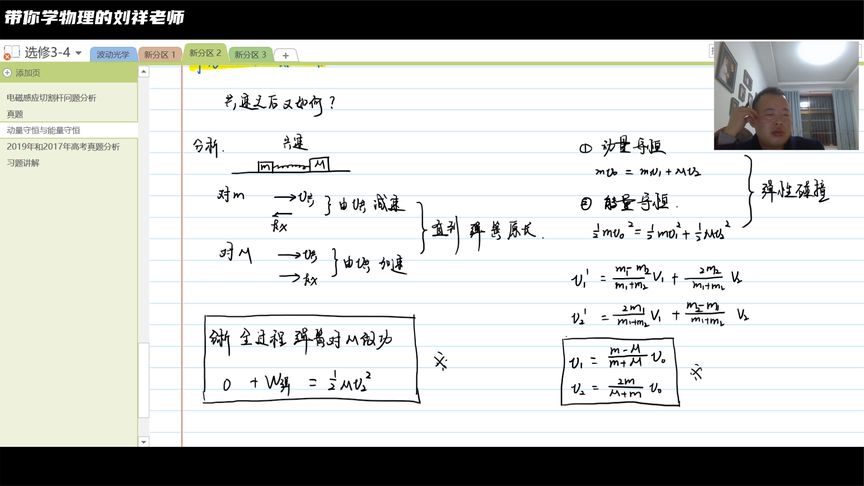 带你学物理的刘祥老师
选修3-4
波动光学
新分区 1
新分区 2
新分区 3
添加页
电磁感应切割杆问题分析
真题
动量守恒与能量守恒
2019年和2017年高考真题分析
习题讲解
共速之后又如何?
分析.
共速
m M
对m → v共
kx
由v共 减速
对M → v共
→ kx
由v共 加速
直到 弹簧原长.
分析 全过程 弹簧对M做功
0 + W弹 = ½Mv₂²
※
① 动量守恒
mv₀ = mv₁ + Mv₂
② 能量守恒.
½mv₀² = ½mv₁² + ½Mv₂²
弹性碰撞
v₁' = (m₁-m₂)/(m₁+m₂) v₁ + 2m₂/(m₁+m₂) v₂
v₂' = 2m₁/(m₁+m₂) v₁ + (m₂-m₁)/(m₁+m₂) v₂
v₁ = (m-M)/(m+M) v₀
v₂ = 2m/(M+m) v₀
※